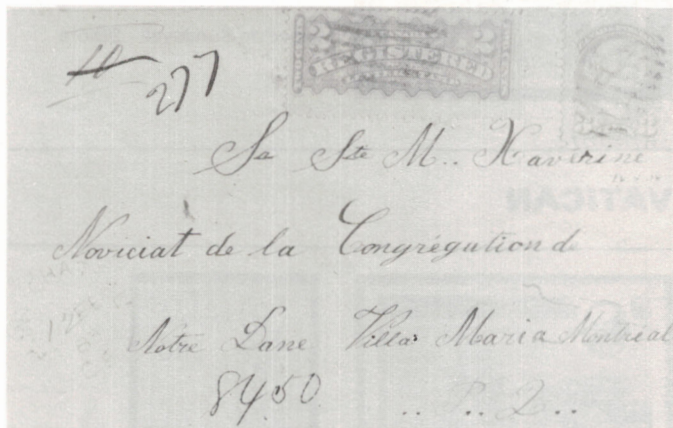 2 REGISTERED 2
277
Sr Ste M.. Xavérine
VATICAN
Noviciat de la Congrégation de
Notre Dane Villa Maria Montreal
8450
.. P.. 2..